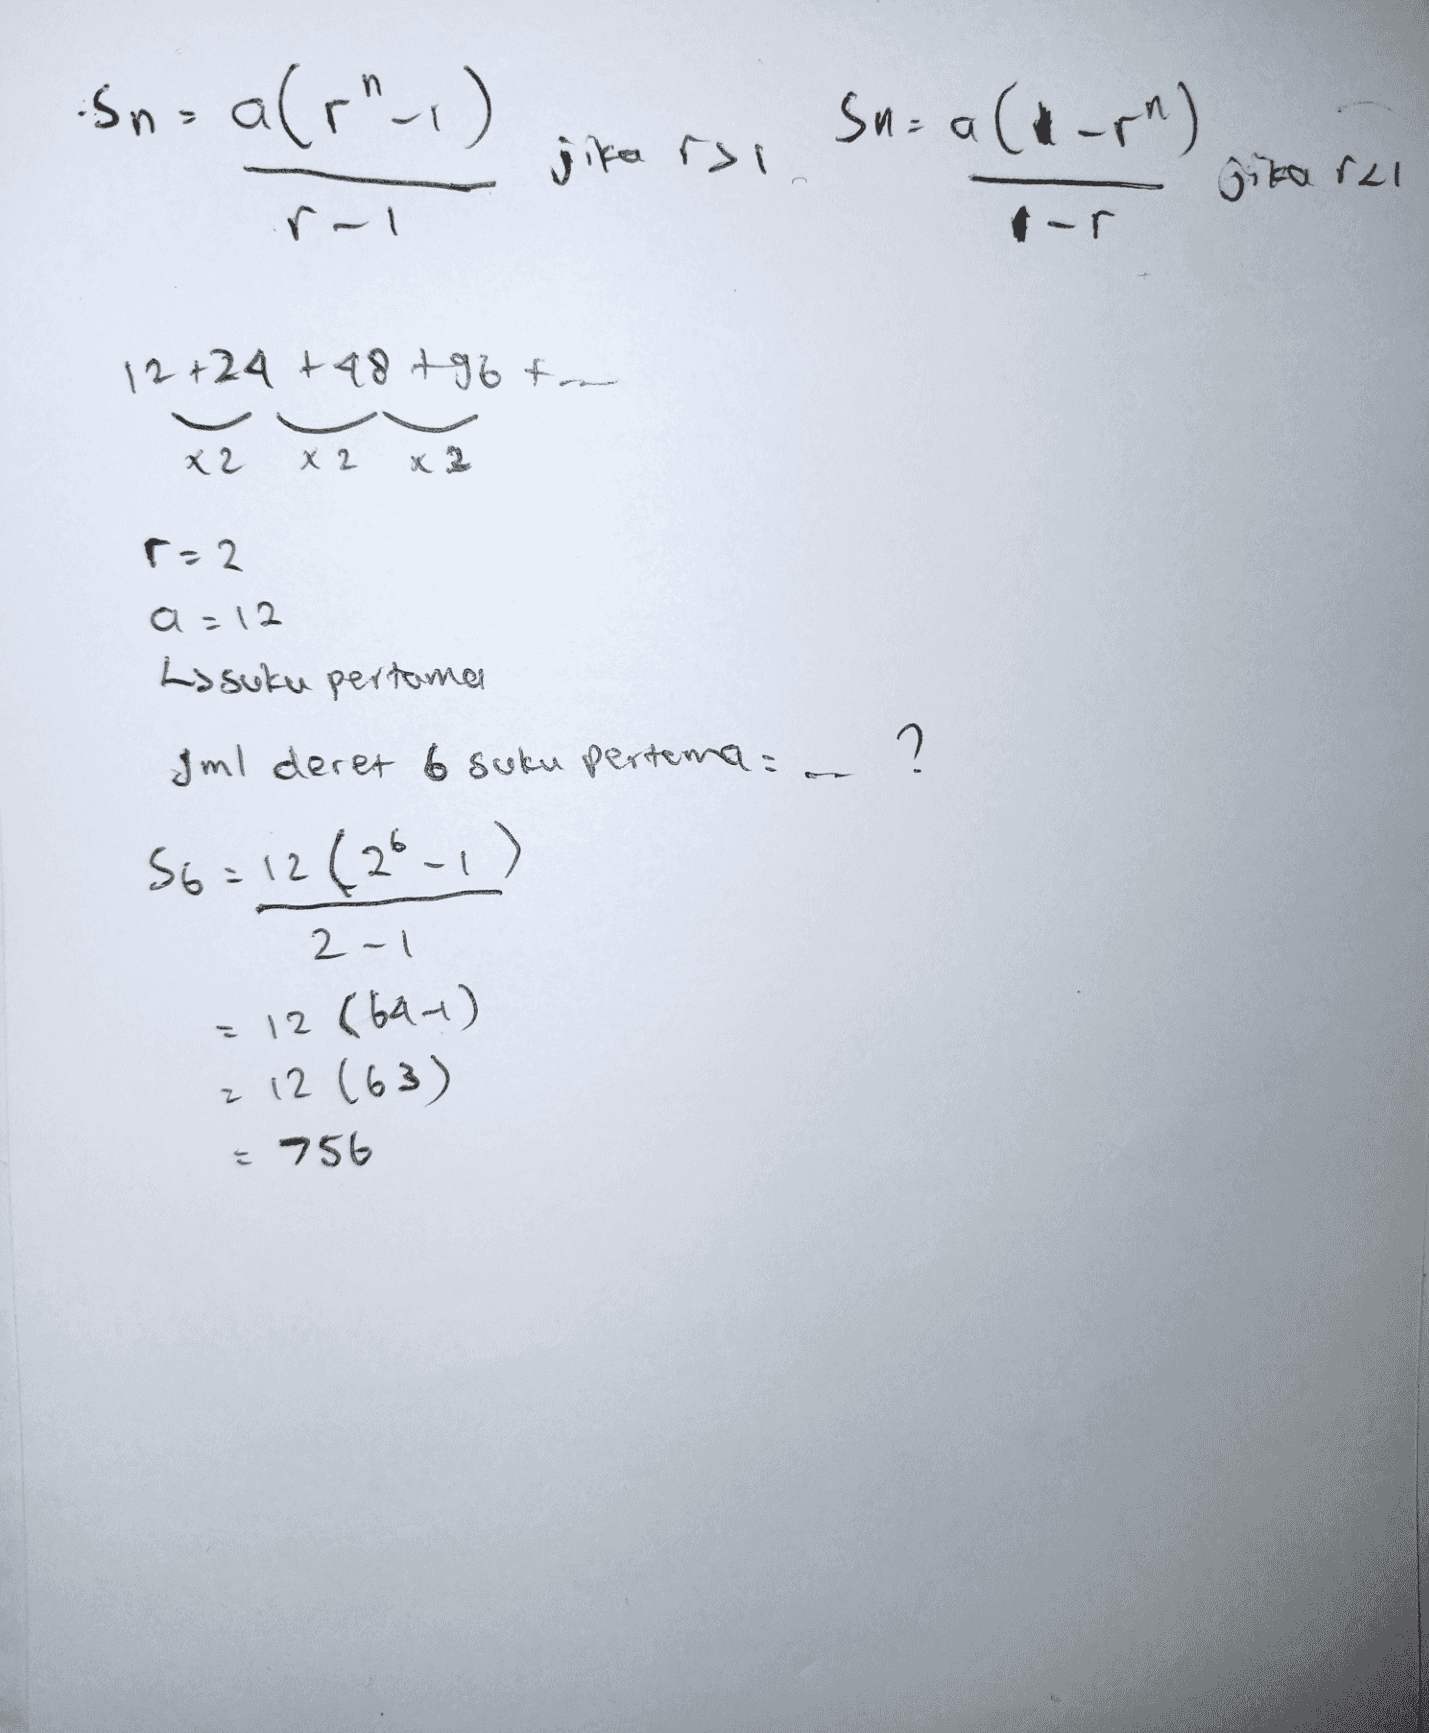 Sn = a(r^n - 1) jika r>1 Sn = a(1 - r^n) jika r<1
r - 1 1 - r
12 + 24 + 48 + 96 + ...
x2 x2 x2
r = 2
a = 12
↳ suku pertama
Jml deret 6 suku pertama = ... ?
S6 = 12 (2^6 - 1)
2 - 1
= 12 (64 - 1)
= 12 (63)
= 756